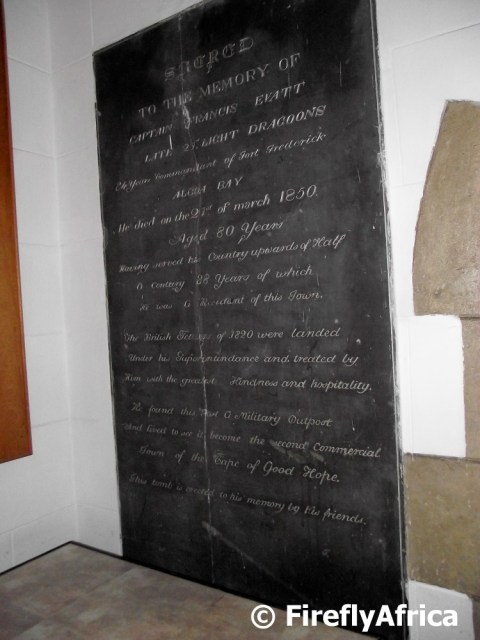 SACRED
TO THE MEMORY OF
CAPTAIN FRANCIS EVATT
LATE 21st LIGHT DRAGOONS
Years Commandant of Fort Frederick
ALGOA BAY
He died on the 21st of march 1850.
Aged 80 Years
Having served his Country upwards of Half
A Century 38 Years of which
He was A Resident of this Town.
The British of 1820 were landed
Under his Superintendance and treated by
Him with the greatest Kindness and hospitality.
He found this Port A Military Outpost
And lived to see it become the second Commercial
Town of the Cape of Good Hope.
This tomb is erected to his memory by his friends.
© FireflyAfrica